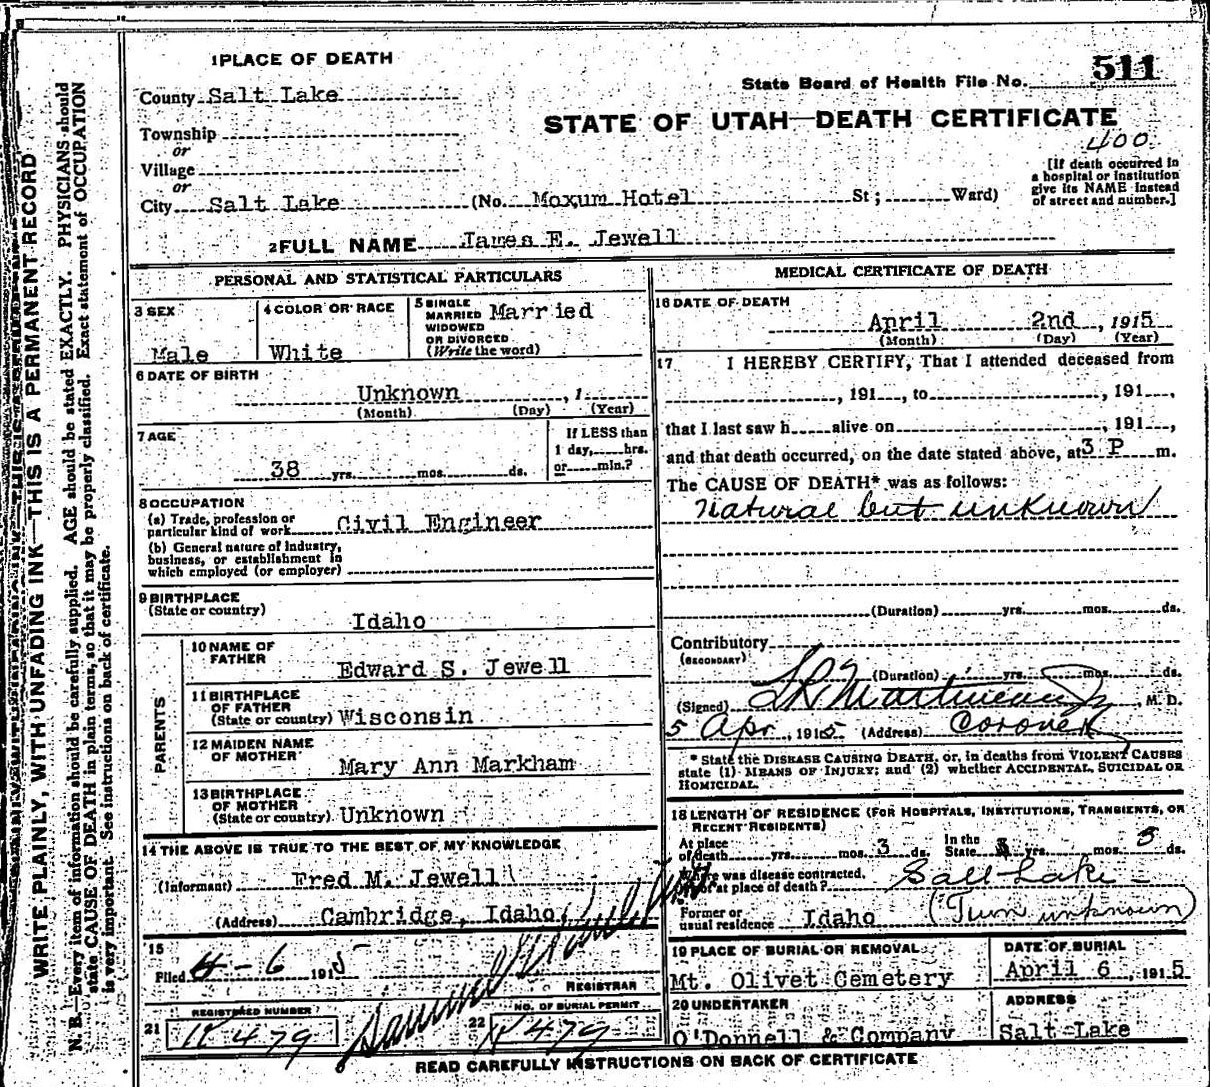 WRITE PLAINLY, WITH UNFADING INK—THIS IS A PERMANENT RECORD
N. B.—Every item of information should be carefully supplied. AGE should be stated EXACTLY. PHYSICIANS should
state CAUSE OF DEATH in plain terms, so that it may be properly classified. Exact statement of OCCUPATION
is very important. See instructions on back of certificate.
1 PLACE OF DEATH
State Board of Health File No. 511
County Salt Lake
STATE OF UTAH—DEATH CERTIFICATE
400
Township
or
Village
or
City Salt Lake (No. Moxum Hotel St; Ward)
[If death occurred in
a hospital or institution
give its NAME instead
of street and number.]
2 FULL NAME James E. Jewell
PERSONAL AND STATISTICAL PARTICULARS
3 SEX
Male
4 COLOR OR RACE
White
5 SINGLE
MARRIED
WIDOWED
OR DIVORCED
(Write the word)
Married
6 DATE OF BIRTH
Unknown , 1
(Month) (Day) (Year)
7 AGE
38 yrs. mos. ds.
If LESS than
1 day, hrs.
or min.?
8 OCCUPATION
(a) Trade, profession or
particular kind of work Civil Engineer
(b) General nature of Industry,
business, or establishment in
which employed (or employer)
9 BIRTHPLACE
(State or country)
Idaho
PARENTS
10 NAME OF
FATHER
Edward S. Jewell
11 BIRTHPLACE
OF FATHER
(State or country) Wisconsin
12 MAIDEN NAME
OF MOTHER
Mary Ann Markham
13 BIRTHPLACE
OF MOTHER
(State or country) Unknown
14 THE ABOVE IS TRUE TO THE BEST OF MY KNOWLEDGE
(Informant) Fred M. Jewell
(Address) Cambridge, Idaho
15
Filed 4-6 1915
REGISTRAR
21 REGISTERED NUMBER
K 479
22 NO. OF BURIAL PERMIT
K 479
MEDICAL CERTIFICATE OF DEATH
16 DATE OF DEATH
April 2nd , 1915
(Month) (Day) (Year)
17 I HEREBY CERTIFY, That I attended deceased from
, 191 , to , 191 ,
that I last saw h alive on , 191 ,
and that death occurred, on the date stated above, at 3 P m.
The CAUSE OF DEATH* was as follows:
Natural but unknown
(Duration) yrs. mos. ds.
Contributory
(SECONDARY)
(Duration) yrs. mos. ds.
(Signed) , M. D.
5 Apr , 1915 (Address) Coroner
* State the DISEASE CAUSING DEATH, or, in deaths from VIOLENT CAUSES
state (1) MEANS OF INJURY; and (2) whether ACCIDENTAL, SUICIDAL OR
HOMICIDAL.
18 LENGTH OF RESIDENCE (FOR HOSPITALS, INSTITUTIONS, TRANSIENTS, OR
RECENT RESIDENTS)
At place
of death yrs. mos. 3 ds. In the
State yrs. mos. 3 ds.
Where was disease contracted,
if not at place of death? Salt Lake
Former or
usual residence Idaho (Town unknown)
19 PLACE OF BURIAL OR REMOVAL
Mt. Olivet Cemetery
DATE OF BURIAL
April 6 , 1915
20 UNDERTAKER
O'Donnell & Company
ADDRESS
Salt Lake
READ CAREFULLY INSTRUCTIONS ON BACK OF CERTIFICATE